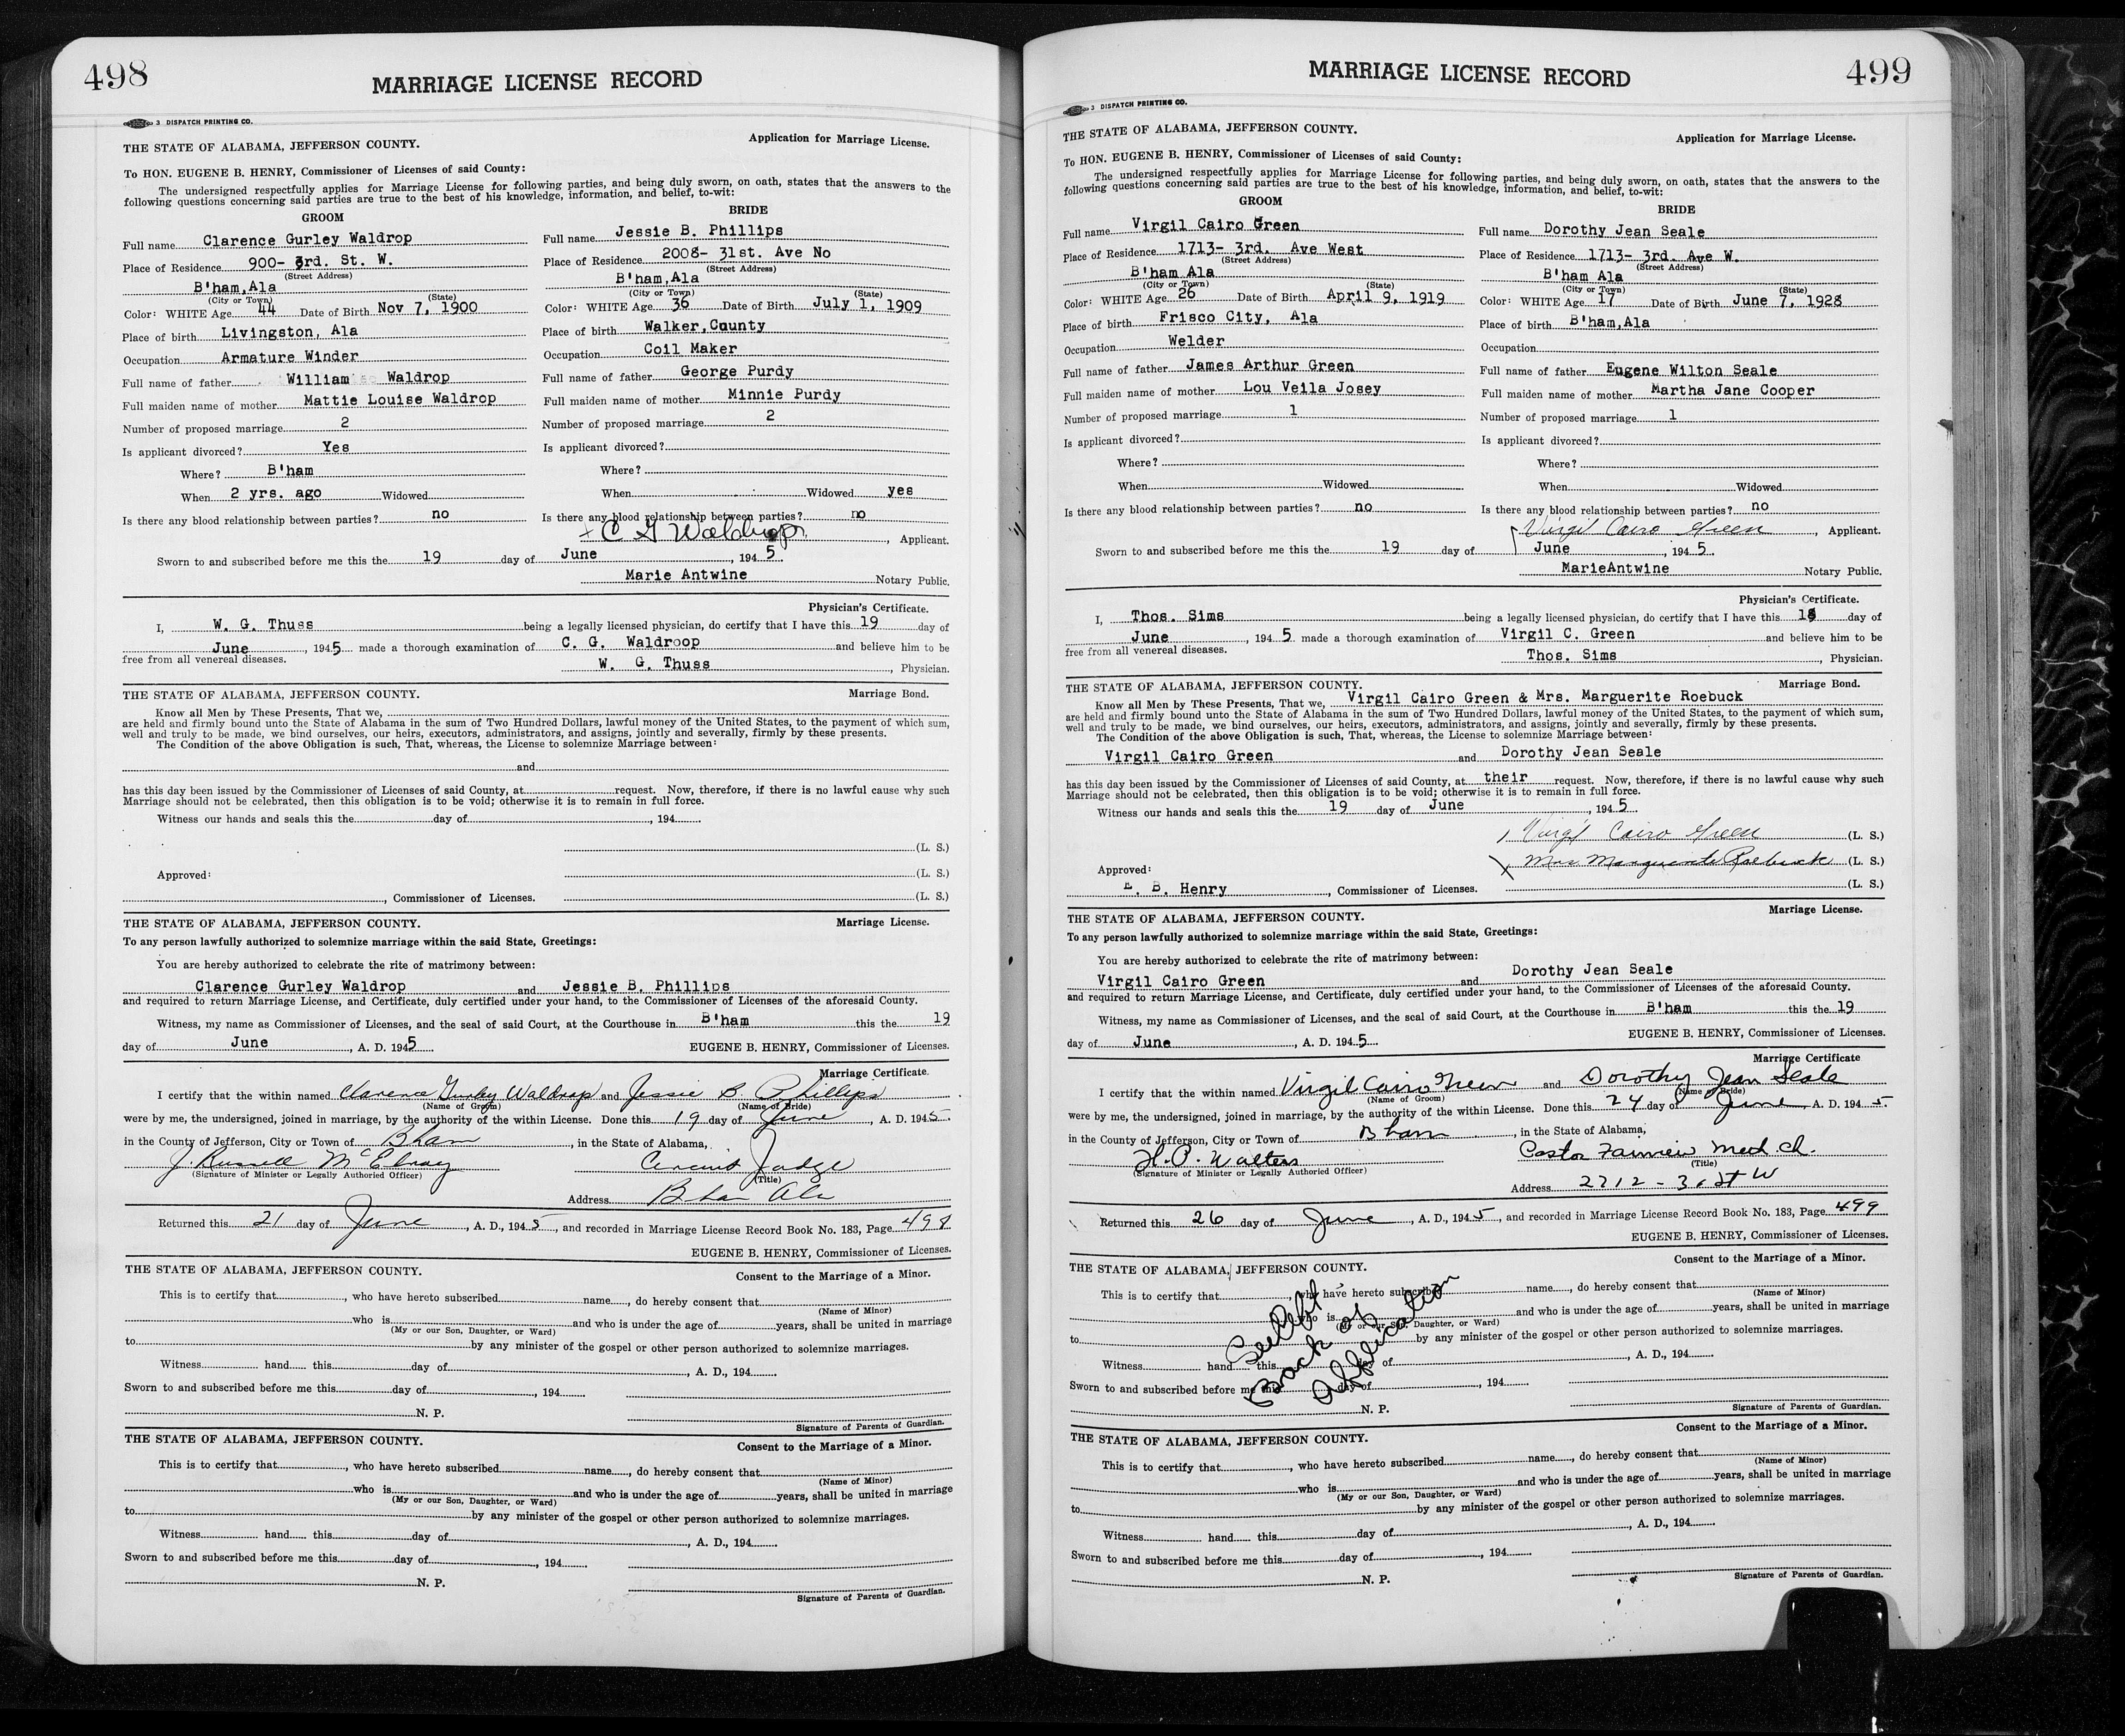 498
MARRIAGE LICENSE RECORD
3 DISPATCH PRINTING CO.
THE STATE OF ALABAMA, JEFFERSON COUNTY. Application for Marriage License.
To HON. EUGENE B. HENRY, Commissioner of Licenses of said County:
The undersigned respectfully applies for Marriage License for following parties, and being duly sworn, on oath, states that the answers to the
following questions concerning said parties are true to the best of his knowledge, information, and belief, to-wit:
GROOM BRIDE
Full name Clarence Gurley Waldrop Full name Jessie B. Phillips
Place of Residence 900- 3rd. St. W. Place of Residence 2008- 31st. Ave No
(Street Address) (Street Address)
B'ham,Ala B'ham,Ala
(City or Town) (State) (City or Town) (State)
Color: WHITE Age 44 Date of Birth Nov 7, 1900 Color: WHITE Age 36 Date of Birth July 1, 1909
Place of birth Livingston, Ala Place of birth Walker,County
Occupation Armature Winder Occupation Coil Maker
Full name of father William Waldrop Full name of father George Purdy
Full maiden name of mother Mattie Louise Waldrop Full maiden name of mother Minnie Purdy
Number of proposed marriage 2 Number of proposed marriage 2
Is applicant divorced? Yes Is applicant divorced?
Where? B'ham Where?
When 2 yrs. ago Widowed When Widowed yes
Is there any blood relationship between parties? no Is there any blood relationship between parties? no
x C G Waldrop, Applicant.
Sworn to and subscribed before me this the 19 day of June, 1945
Marie Antwine Notary Public.
Physician's Certificate.
I, W. G. Thuss being a legally licensed physician, do certify that I have this 19 day of
June, 1945 made a thorough examination of C. G. Waldroop and believe him to be
free from all venereal diseases.
W. G. Thuss, Physician.
THE STATE OF ALABAMA, JEFFERSON COUNTY. Marriage Bond.
Know all Men by These Presents, That we,
are held and firmly bound unto the State of Alabama in the sum of Two Hundred Dollars, lawful money of the United States, to the payment of which sum,
well and truly to be made, we bind ourselves, our heirs, executors, administrators, and assigns, jointly and severally, firmly by these presents.
The Condition of the above Obligation is such, That, whereas, the License to solemnize Marriage between:
and
has this day been issued by the Commissioner of Licenses of said County, at request. Now, therefore, if there is no lawful cause why such
Marriage should not be celebrated, then this obligation is to be void; otherwise it is to remain in full force.
Witness our hands and seals this the day of, 194
(L. S.)
Approved: (L. S.)
, Commissioner of Licenses. (L. S.)
THE STATE OF ALABAMA, JEFFERSON COUNTY. Marriage License.
To any person lawfully authorized to solemnize marriage within the said State, Greetings:
You are hereby authorized to celebrate the rite of matrimony between:
Clarence Gurley Waldrop and Jessie B. Phillips
and required to return Marriage License, and Certificate, duly certified under your hand, to the Commissioner of Licenses of the aforesaid County.
Witness, my name as Commissioner of Licenses, and the seal of said Court, at the Courthouse in B'ham this the 19
day of June, A. D. 1945 EUGENE B. HENRY, Commissioner of Licenses.
Marriage Certificate
I certify that the within named Clarence Gurley Waldrop and Jessie B Phillips
(Name of Groom) (Name of Bride)
were by me, the undersigned, joined in marriage, by the authority of the within License. Done this 19 day of June, A. D. 1945
in the County of Jefferson, City or Town of Bham, in the State of Alabama,
J. Russell McElroy Circuit Judge
(Signature of Minister or Legally Authoried Officer) (Title)
Address Bham Ala
Returned this 21 day of June, A. D., 1945, and recorded in Marriage License Record Book No. 183, Page 498
EUGENE B. HENRY, Commissioner of Licenses.
THE STATE OF ALABAMA, JEFFERSON COUNTY. Consent to the Marriage of a Minor.
This is to certify that, who have hereto subscribed name, do hereby consent that
(Name of Minor)
who is and who is under the age of years, shall be united in marriage
(My or our Son, Daughter, or Ward)
to by any minister of the gospel or other person authorized to solemnize marriages.
Witness hand this day of, A. D., 194
Sworn to and subscribed before me this day of, 194
N. P.
Signature of Parents of Guardian.
THE STATE OF ALABAMA, JEFFERSON COUNTY. Consent to the Marriage of a Minor.
This is to certify that, who have hereto subscribed name, do hereby consent that
(Name of Minor)
who is and who is under the age of years, shall be united in marriage
(My or our Son, Daughter, or Ward)
to by any minister of the gospel or other person authorized to solemnize marriages.
Witness hand this day of, A. D., 194
Sworn to and subscribed before me this day of, 194
N. P.
Signature of Parents of Guardian.
499
MARRIAGE LICENSE RECORD
3 DISPATCH PRINTING CO.
THE STATE OF ALABAMA, JEFFERSON COUNTY. Application for Marriage License.
To HON. EUGENE B. HENRY, Commissioner of Licenses of said County:
The undersigned respectfully applies for Marriage License for following parties, and being duly sworn, on oath, states that the answers to the
following questions concerning said parties are true to the best of his knowledge, information, and belief, to-wit:
GROOM BRIDE
Full name Virgil Cairo Green Full name Dorothy Jean Seale
Place of Residence 1713- 3rd. Ave West Place of Residence 1713- 3rd. Ave W.
(Street Address) (Street Address)
B'ham Ala B'ham Ala
(City or Town) (State) (City or Town) (State)
Color: WHITE Age 26 Date of Birth April 9, 1919 Color: WHITE Age 17 Date of Birth June 7, 1928
Place of birth Frisco City, Ala Place of birth B'ham,Ala
Occupation Welder Occupation
Full name of father James Arthur Green Full name of father Eugene Wilton Seale
Full maiden name of mother Lou Veila Josey Full maiden name of mother Martha Jane Cooper
Number of proposed marriage 1 Number of proposed marriage 1
Is applicant divorced? Is applicant divorced?
Where? Where?
When Widowed When Widowed
Is there any blood relationship between parties? no Is there any blood relationship between parties? no
Virgil Cairo Green, Applicant.
Sworn to and subscribed before me this the 19 day of June, 1945
MarieAntwine Notary Public.
Physician's Certificate.
I, Thos. Sims being a legally licensed physician, do certify that I have this 18 day of
June, 1945 made a thorough examination of Virgil C. Green and believe him to be
free from all venereal diseases.
Thos. Sims, Physician.
THE STATE OF ALABAMA, JEFFERSON COUNTY. Marriage Bond.
Know all Men by These Presents, That we, Virgil Cairo Green & Mrs. Marguerite Roebuck
are held and firmly bound unto the State of Alabama in the sum of Two Hundred Dollars, lawful money of the United States, to the payment of which sum,
well and truly to be made, we bind ourselves, our heirs, executors, administrators, and assigns, jointly and severally, firmly by these presents.
The Condition of the above Obligation is such, That, whereas, the License to solemnize Marriage between:
Virgil Cairo Green and Dorothy Jean Seale
has this day been issued by the Commissioner of Licenses of said County, at their request. Now, therefore, if there is no lawful cause why such
Marriage should not be celebrated, then this obligation is to be void; otherwise it is to remain in full force.
Witness our hands and seals this the 19 day of June, 1945
Virgil Cairo Green (L. S.)
Approved: x Mrs Marguerite Roebuck (L. S.)
E. B. Henry, Commissioner of Licenses. (L. S.)
THE STATE OF ALABAMA, JEFFERSON COUNTY. Marriage License.
To any person lawfully authorized to solemnize marriage within the said State, Greetings:
You are hereby authorized to celebrate the rite of matrimony between:
Virgil Cairo Green and Dorothy Jean Seale
and required to return Marriage License, and Certificate, duly certified under your hand, to the Commissioner of Licenses of the aforesaid County.
Witness, my name as Commissioner of Licenses, and the seal of said Court, at the Courthouse in B'ham this the 19
day of June, A. D. 1945 EUGENE B. HENRY, Commissioner of Licenses.
Marriage Certificate
I certify that the within named Virgil Cairo Green and Dorothy Jean Seale
(Name of Groom) (Name of Bride)
were by me, the undersigned, joined in marriage, by the authority of the within License. Done this 24 day of June, A. D. 1945
in the County of Jefferson, City or Town of Bham, in the State of Alabama,
H.P. Walters Castor Fairview Meth Ch.
(Signature of Minister or Legally Authoried Officer) (Title)
Address 2212 - 31 St W
Returned this 26 day of June, A. D., 1945, and recorded in Marriage License Record Book No. 183, Page 499
EUGENE B. HENRY, Commissioner of Licenses.
THE STATE OF ALABAMA, JEFFERSON COUNTY. Consent to the Marriage of a Minor.
This is to certify that, who have hereto subscribed name, do hereby consent that
(Name of Minor)
who is and who is under the age of years, shall be united in marriage
(My or our Son, Daughter, or Ward)
to by any minister of the gospel or other person authorized to solemnize marriages.
Witness hand this day of, A. D., 194
Sworn to and subscribed before me this day of, 194
N. P.
Signature of Parents of Guardian.
Back of
Application
THE STATE OF ALABAMA, JEFFERSON COUNTY. Consent to the Marriage of a Minor.
This is to certify that, who have hereto subscribed name, do hereby consent that
(Name of Minor)
who is and who is under the age of years, shall be united in marriage
(My or our Son, Daughter, or Ward)
to by any minister of the gospel or other person authorized to solemnize marriages.
Witness hand this day of, A. D., 194
Sworn to and subscribed before me this day of, 194
N. P.
Signature of Parents of Guardian.